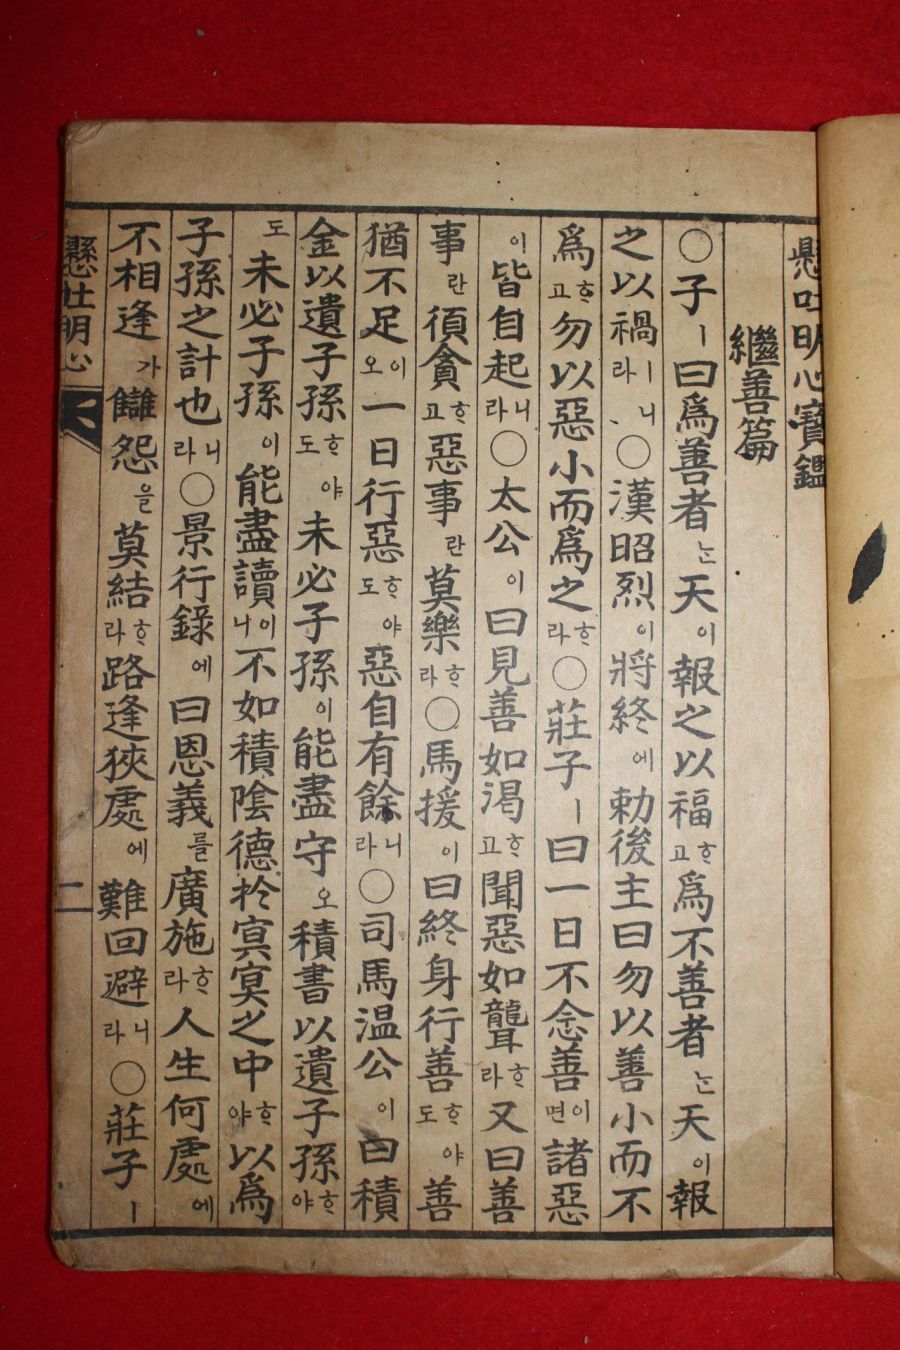 懸吐明心寶鑑
繼善篇
○子ㅣ曰爲善者ᄂᆞᆫ天이報之以福ᄒᆞ고爲不善者ᄂᆞᆫ天이報
之以禍ㅣ니라○漢昭烈이將終에勅後主曰勿以善小而不
爲ᄒᆞ고勿以惡小而爲之ᄒᆞ라○莊子ㅣ曰一日不念善이면諸惡
이皆自起니라○太公이曰見善如渴ᄒᆞ고聞惡如聾ᄒᆞ라又曰善
事란須貪ᄒᆞ고惡事란莫樂ᄒᆞ라○馬援이曰終身行善ᄒᆞ도야善
猶不足이오一日行惡ᄒᆞ도야惡自有餘니라○司馬温公이曰積
金以遺子孫ᄒᆞ도야未必子孫이能盡守오積書以遺子孫ᄒᆞ야
도未必子孫이能盡讀이니不如積陰德於冥冥之中ᄒᆞ야以爲
子孫之計也니라○景行錄에曰恩義를廣施ᄒᆞ라人生何處에
不相逢가讎怨을莫結ᄒᆞ라路逢狹處에難回避니라○莊子ㅣ
懸吐明心
二